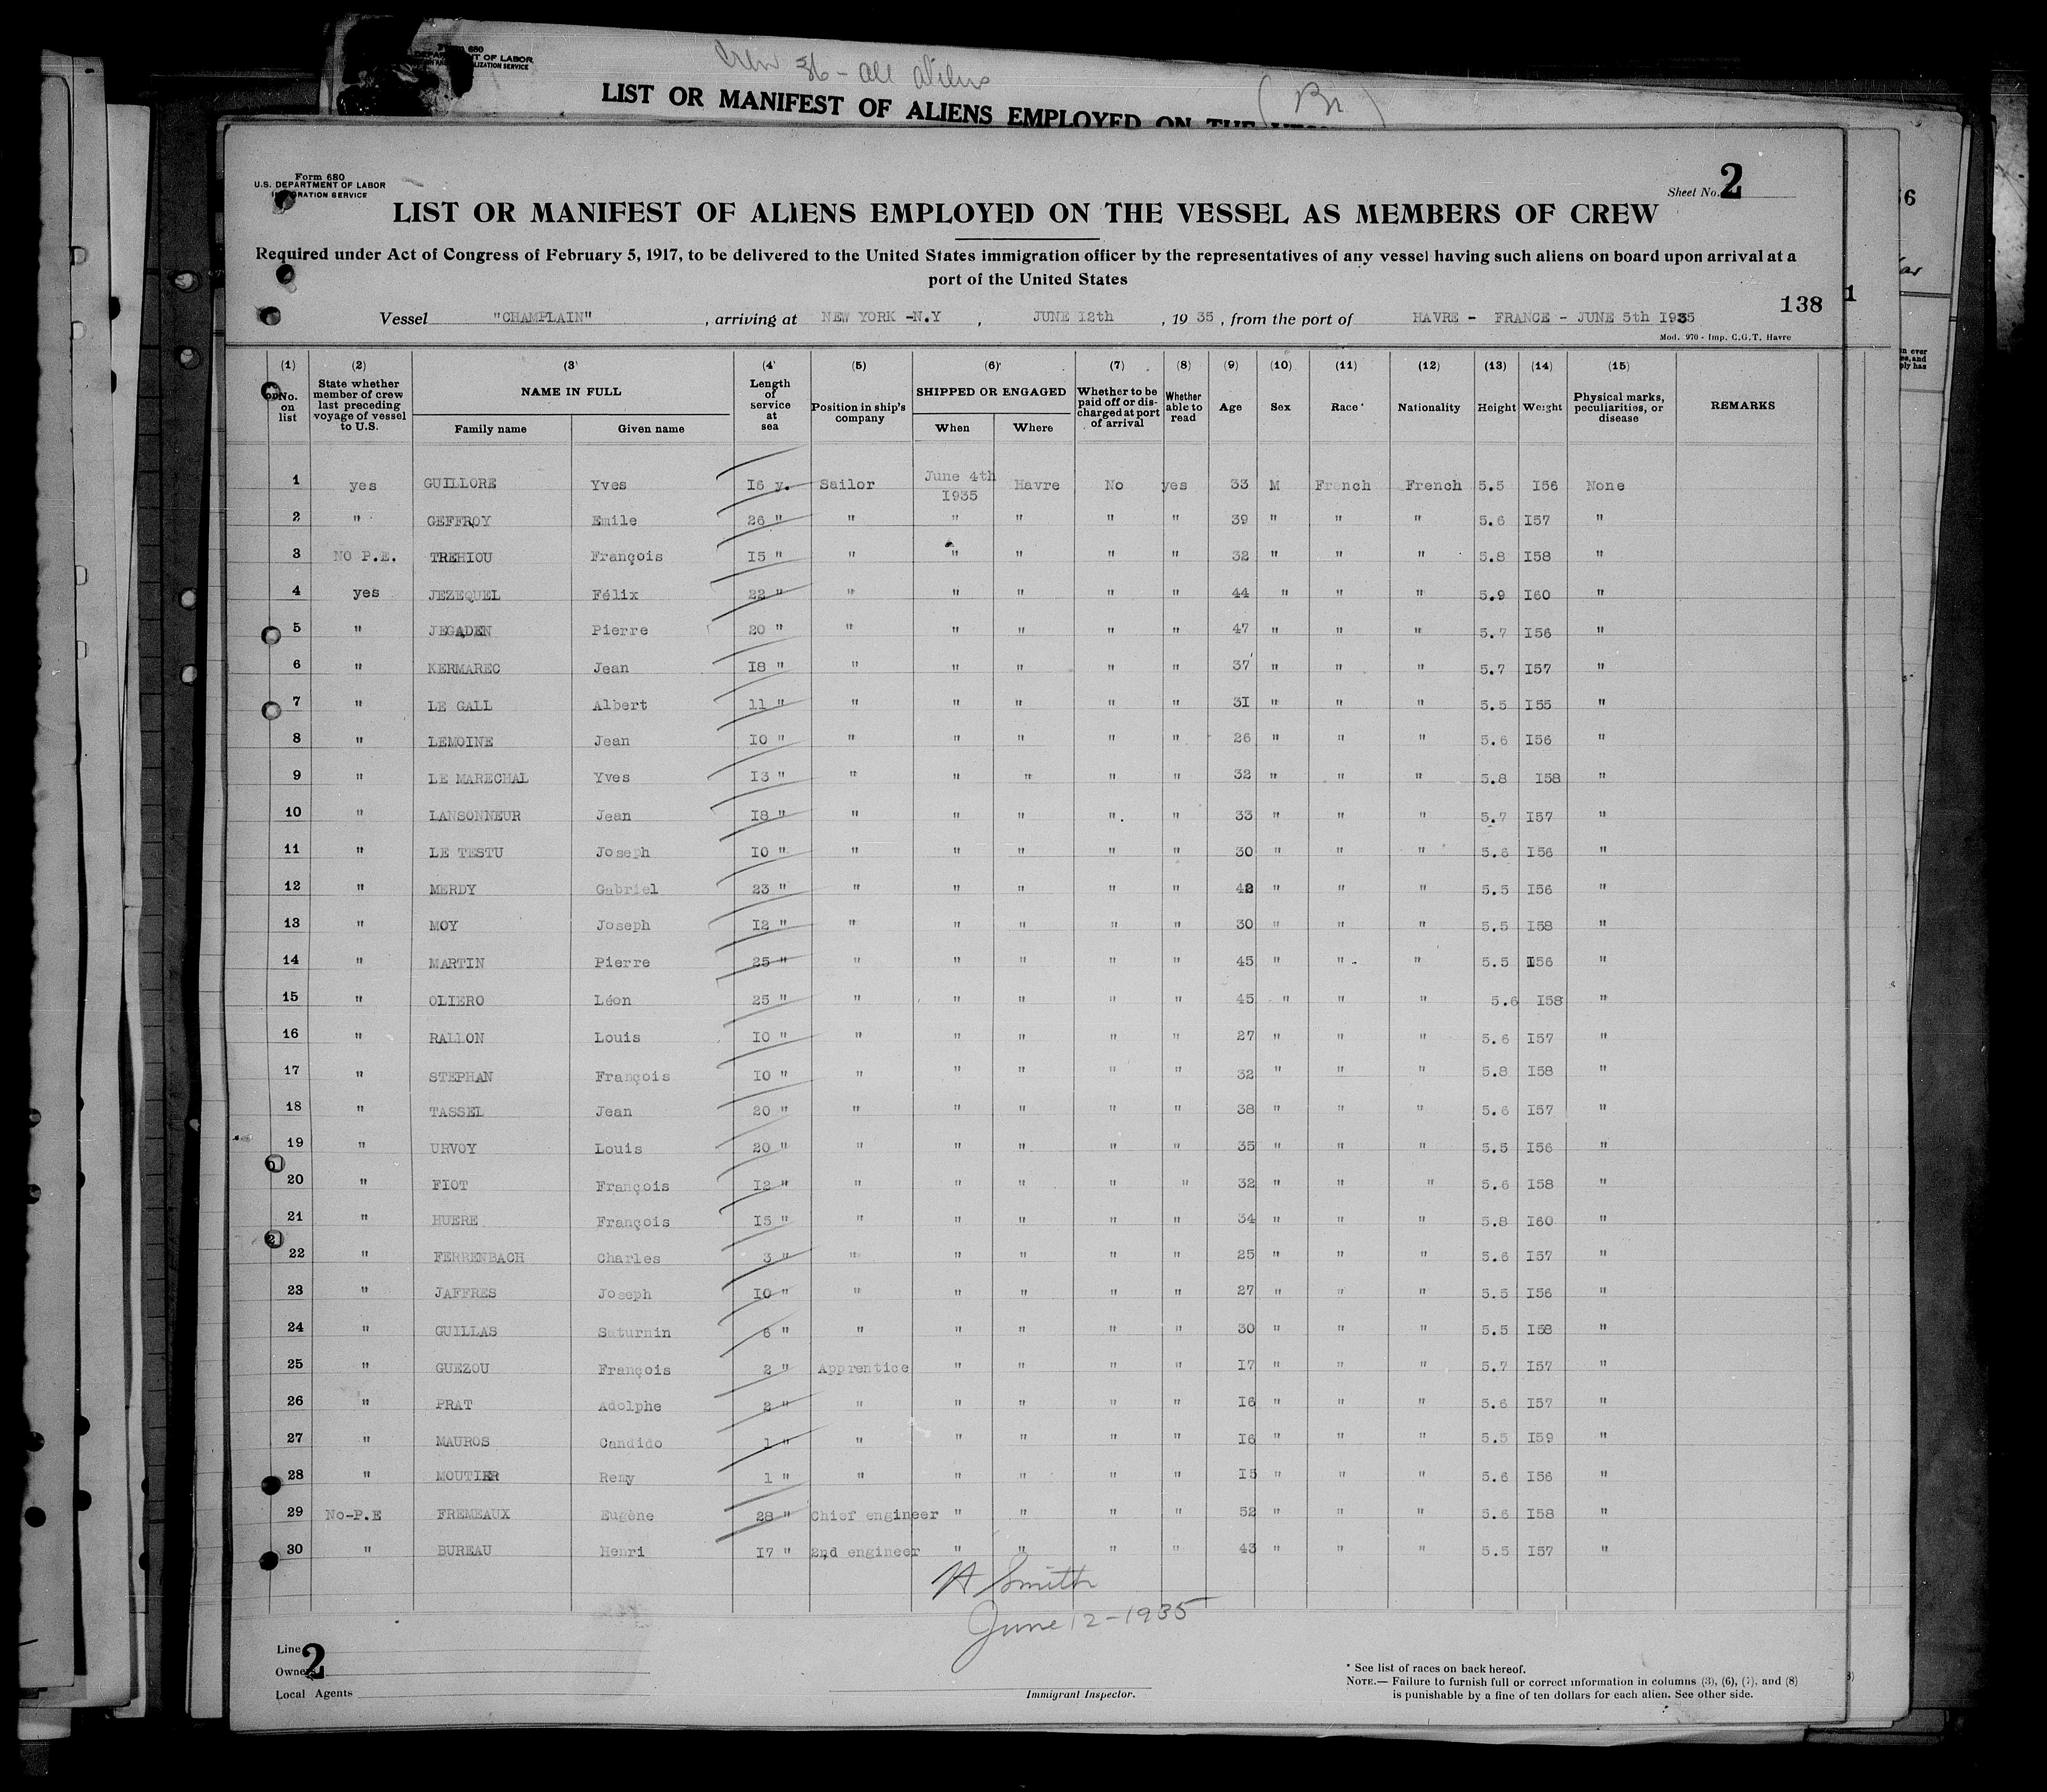 Form 680
DEPARTMENT OF LABOR
Crew 36 - all aliens
LIST OR MANIFEST OF ALIENS EMPLOYED ON THE
(Br)
Form 680
U.S. DEPARTMENT OF LABOR
IMMIGRATION SERVICE
Sheet No. 2
LIST OR MANIFEST OF ALIENS EMPLOYED ON THE VESSEL AS MEMBERS OF CREW
Required under Act of Congress of February 5, 1917, to be delivered to the United States immigration officer by the representatives of any vessel having such aliens on board upon arrival at a
port of the United States
138
Vessel "CHAMPLAIN", arriving at NEW YORK -N.Y, JUNE 12th, 1935, from the port of HAVRE - FRANCE - JUNE 5th I935
Mod. 970 - Imp. C.G.T. Havre
(1) No. on list (2) State whether member of crew last preceding voyage of vessel to U.S. (3) NAME IN FULL Family name Given name (4) Length of service at sea (5) Position in ship's company (6) SHIPPED OR ENGAGED When Where (7) Whether to be paid off or discharged at port of arrival (8) Whether able to read (9) Age (10) Sex (11) Race* (12) Nationality (13) Height (14) Weight (15) Physical marks, peculiarities, or disease REMARKS
1 yes GUILLORE Yves I6 y. Sailor June 4th I935 Havre No yes 33 M French French 5.5 I56 None
2 " GEFFROY Emile 26 " " " " " " 39 " " " 5.6 I57 "
3 NO P.E. TREHIOU François I5 " " " " " " 32 " " " 5.8 I58 "
4 yes JEZEQUEL Félix 22 " " " " " " 44 " " " 5.9 I60 "
5 " JEGADEN Pierre 20 " " " " " " 47 " " " 5.7 I56 "
6 " KERMAREC Jean I8 " " " " " " 37 " " " 5.7 I57 "
7 " LE GALL Albert 11 " " " " " " 3I " " " 5.5 I55 "
8 " LEMOINE Jean I0 " " " " " " 26 " " " 5.6 I56 "
9 " LE MARECHAL Yves I3 " " " " " " 32 " " " 5.8 I58 "
10 " LANSONNEUR Jean I8 " " " " " " 33 " " " 5.7 I57 "
11 " LE TESTU Joseph I0 " " " " " " 30 " " " 5.6 I56 "
12 " MERDY Gabriel 23 " " " " " " 42 " " " 5.5 I56 "
13 " MOY Joseph I2 " " " " " " 30 " " " 5.5 I58 "
14 " MARTIN Pierre 25 " " " " " " 45 " " " 5.5 I56 "
15 " OLIERO Léon 25 " " " " " " 45 " " " 5.6 I58 "
16 " RALLON Louis I0 " " " " " " 27 " " " 5.6 I57 "
17 " STEPHAN François I0 " " " " " " 32 " " " 5.8 I58 "
18 " TASSEL Jean 20 " " " " " " 38 " " " 5.6 I57 "
19 " URVOY Louis 20 " " " " " " 35 " " " 5.5 I56 "
20 " FIOT François I2 " " " " " " 32 " " " 5.6 I58 "
21 " HUERE François I5 " " " " " " 34 " " " 5.8 I60 "
22 " FERRENBACH Charles 3 " " " " " " 25 " " " 5.6 I57 "
23 " JAFFRES Joseph I0 " " " " " " 27 " " " 5.5 I56 "
24 " GUILLAS Saturnin 6 " " " " " " 30 " " " 5.5 I58 "
25 " GUEZOU François 2 " Apprentice " " " " I7 " " " 5.7 I57 "
26 " PRAT Adolphe 2 " " " " " " I6 " " " 5.6 I57 "
27 " MAUROS Candido 1 " " " " " " I6 " " " 5.5 I59 "
28 " MOUTIER Remy 1 " " " " " " I5 " " " 5.6 I56 "
29 No-P.E FREMEAUX Eugène 28 " Chief engineer " " " " 52 " " " 5.6 I58 "
30 " BUREAU Henri I7 " 2nd engineer " " " " 43 " " " 5.5 I57 "
H Smith
June 12-1935
Line 2
Owners
Local Agents
Immigrant Inspector.
* See list of races on back hereof.
NOTE.— Failure to furnish full or correct information in columns (3), (6), (7), and (8)
is punishable by a fine of ten dollars for each alien. See other side.